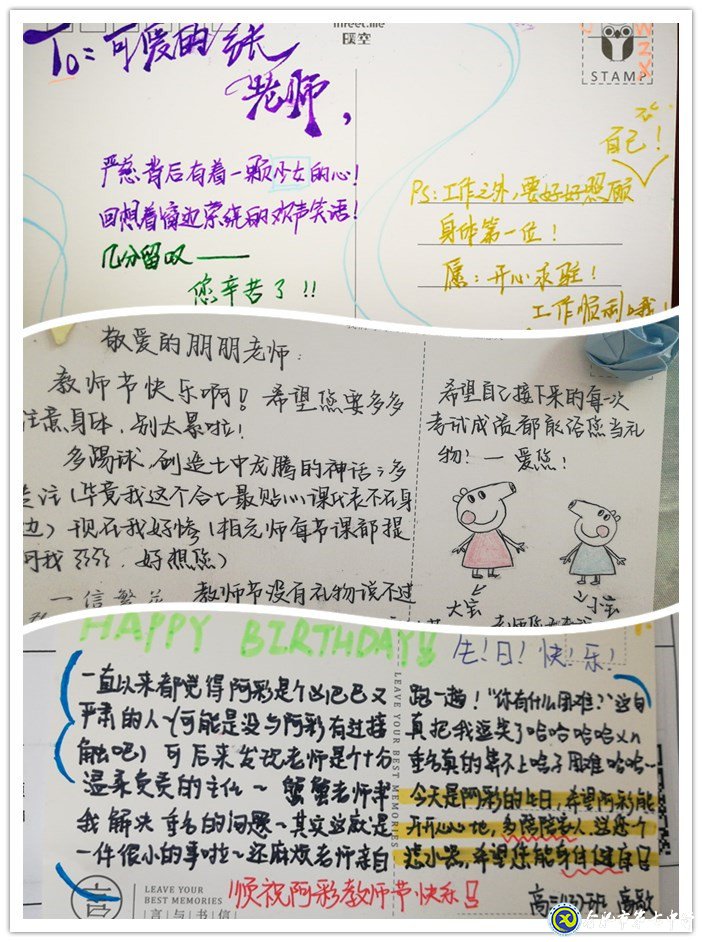 To：可爱的张
老师，
严慈背后有着一颗少女的心！
回想着窗边笼统的欢声笑语！
几分留叹——
您辛苦了!!
STAMP
自己！
PS：工作之外，要好好照顾
身体第一位！
愿：开心永驻！
工作顺利哦！
敬爱的朋朋老师：
教师节快乐啊！希望您要多多
注意身体，别太累啦！
多踢球，创造七中龙腾的神话；多
关注（毕竟我这个合七最贴心课代表不在身
边）现在我好惨（相元师每节课都提
问我 好想您）
一信繁花 教师节没有礼物说不过
希望自己接下来的每一次
考试成绩都能给您当礼
物！—爱您！
大宝
小宝
HAPPY BIRTHDAY!!
生！日！快！乐！
一直以来都觉得阿彩是个凶巴巴又
严肃的人~（可能是没与阿彩有过接
触吧）可后来发现老师是个十分
温柔负责的主任~ 蟹蟹老师帮
我解决重名的问题~其实这就是
一件很小的事啦~还麻烦老师亲自
跑一趟！“你有什么困难？”这句
真把我逗笑了哈哈哈哈xn
重名真的算不上啥子困难哈哈~
今天是阿彩的生日，希望阿彩能
开开心心地，多陪陪家人
希望您能身体健康！
LEAVE YOUR BEST MEMORIES
LEAVE YOUR
BEST MEMORIES
言与书信
顺祝阿彩教师节快乐！